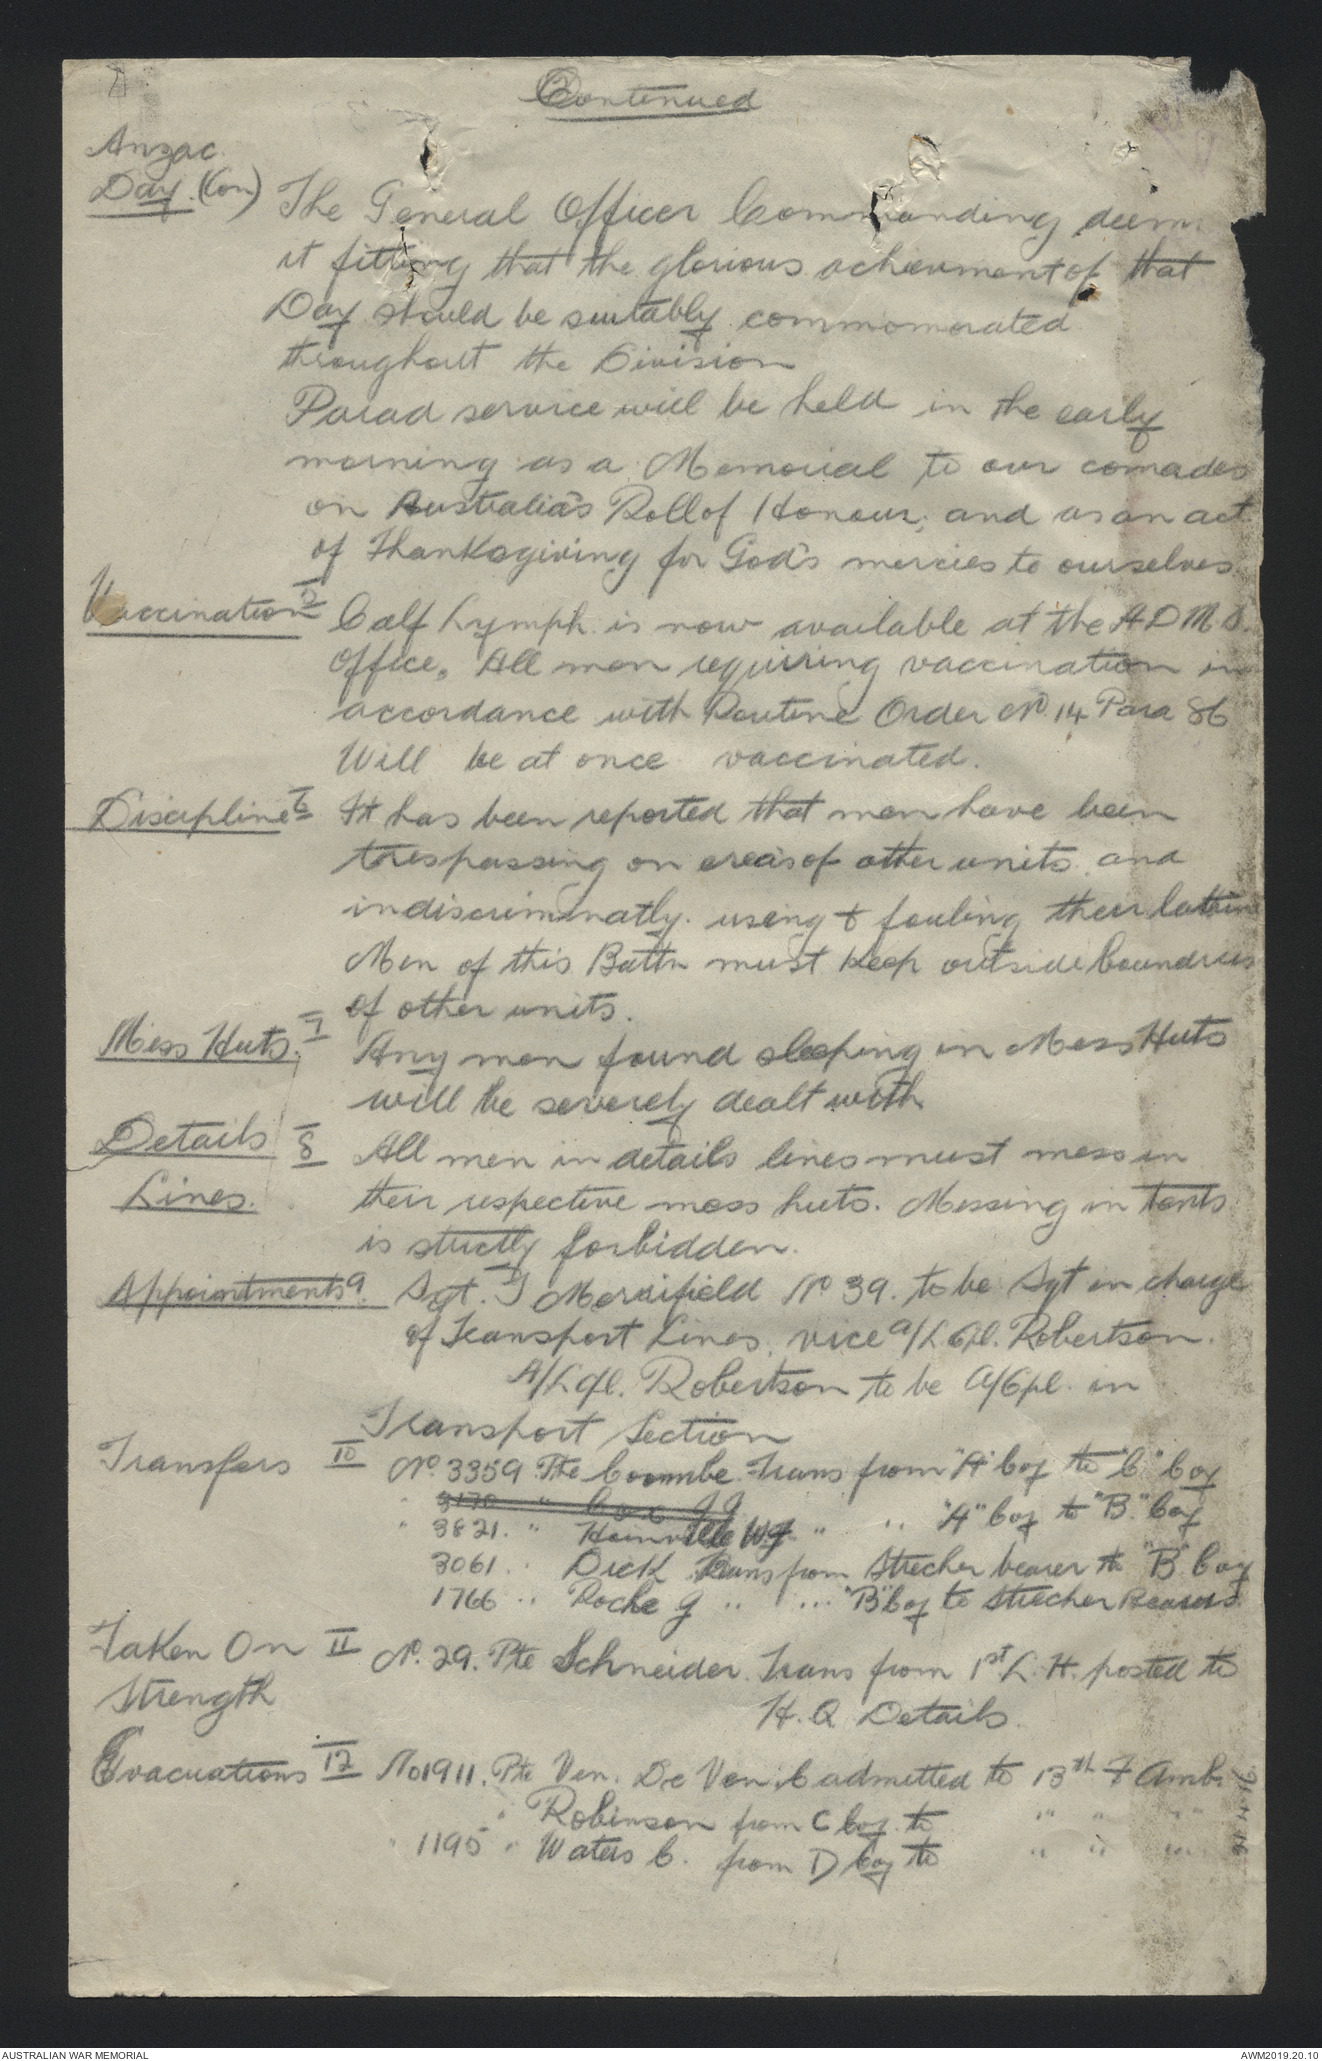 Continued
Anzac
Day. (Con) The General Officer Commanding deem
it fitting that the glorious achievment of that
Day should be suitably commomorated
throughout the Division
Parad service will be held in the early
morning as a Memorial to our comrades
on Australia's Roll of Honour, and as an act
of Thanksgiving for God's mercies to ourselves
Vaccination 5 Calf Lymph is now available at the A D M S.
Office. All men requiring vaccination in
accordance with Routine Order No 14 Para 86
Will be at once vaccinated.
Discipline 6 It has been reported that men have been
trespassing on areas of other units and
indiscriminatly using & fouling their
Men of this Battn must keep outside boundries
of other units.
Mess Huts. 7 Any men found sleeping in Mess Huts
will be severely dealt with
Details 8 All men in details lines must mess in
Lines. their respective mess huts. Messing in Tents
is strictly forbidden.
Appointments 9. Sgt. J Merrifield No 39. to be Sgt in charge
of Transport Lines, vice a/L Cpl. Robertson.
A/L Cpl. Robertson to be A/Cpl. in
Transport Section
Transfers 10 No. 3359 Pte Coombe Trans from "A" Coy to "C" Coy
" 3170 " "A" Coy to "B" Coy
" 3821. " W.J. " "
3061. " Dick Trans from Strecher bearer to "B" Coy
1766 " Roche G " " "B" Coy to Strecher Bearers.
Taken On 11 No. 29. Pte Schneider Trans from 1st L. H. posted to
Strength H. Q Details.
Evacuations 12 No 1911. Pte Ven. De Ven. C admitted to 13th F Amb.
" Robinson from C Coy to " " "
" 1195 " Waters C. from D Coy to " " "
AUSTRALIAN WAR MEMORIAL
AWM2019.20.10